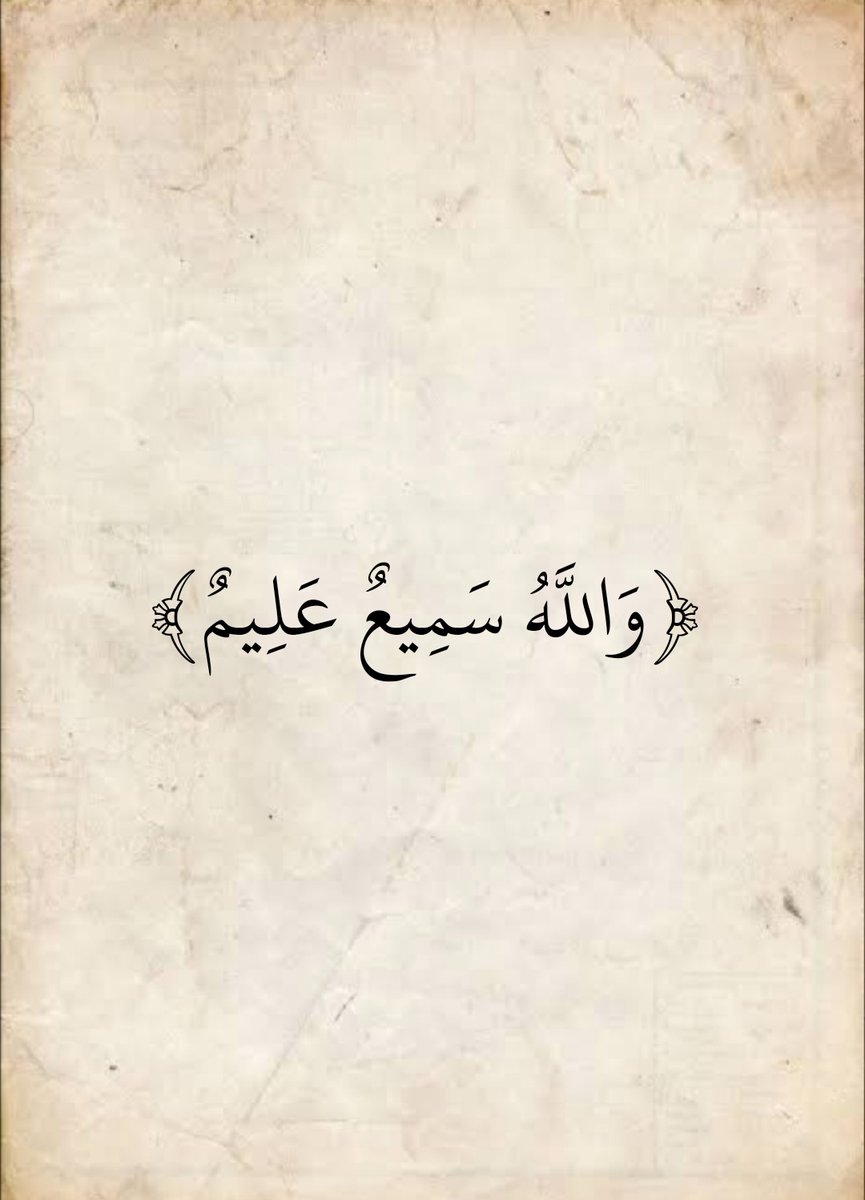 ﴿وَاللَّهُ سَمِيعٌ عَلِيمٌ﴾